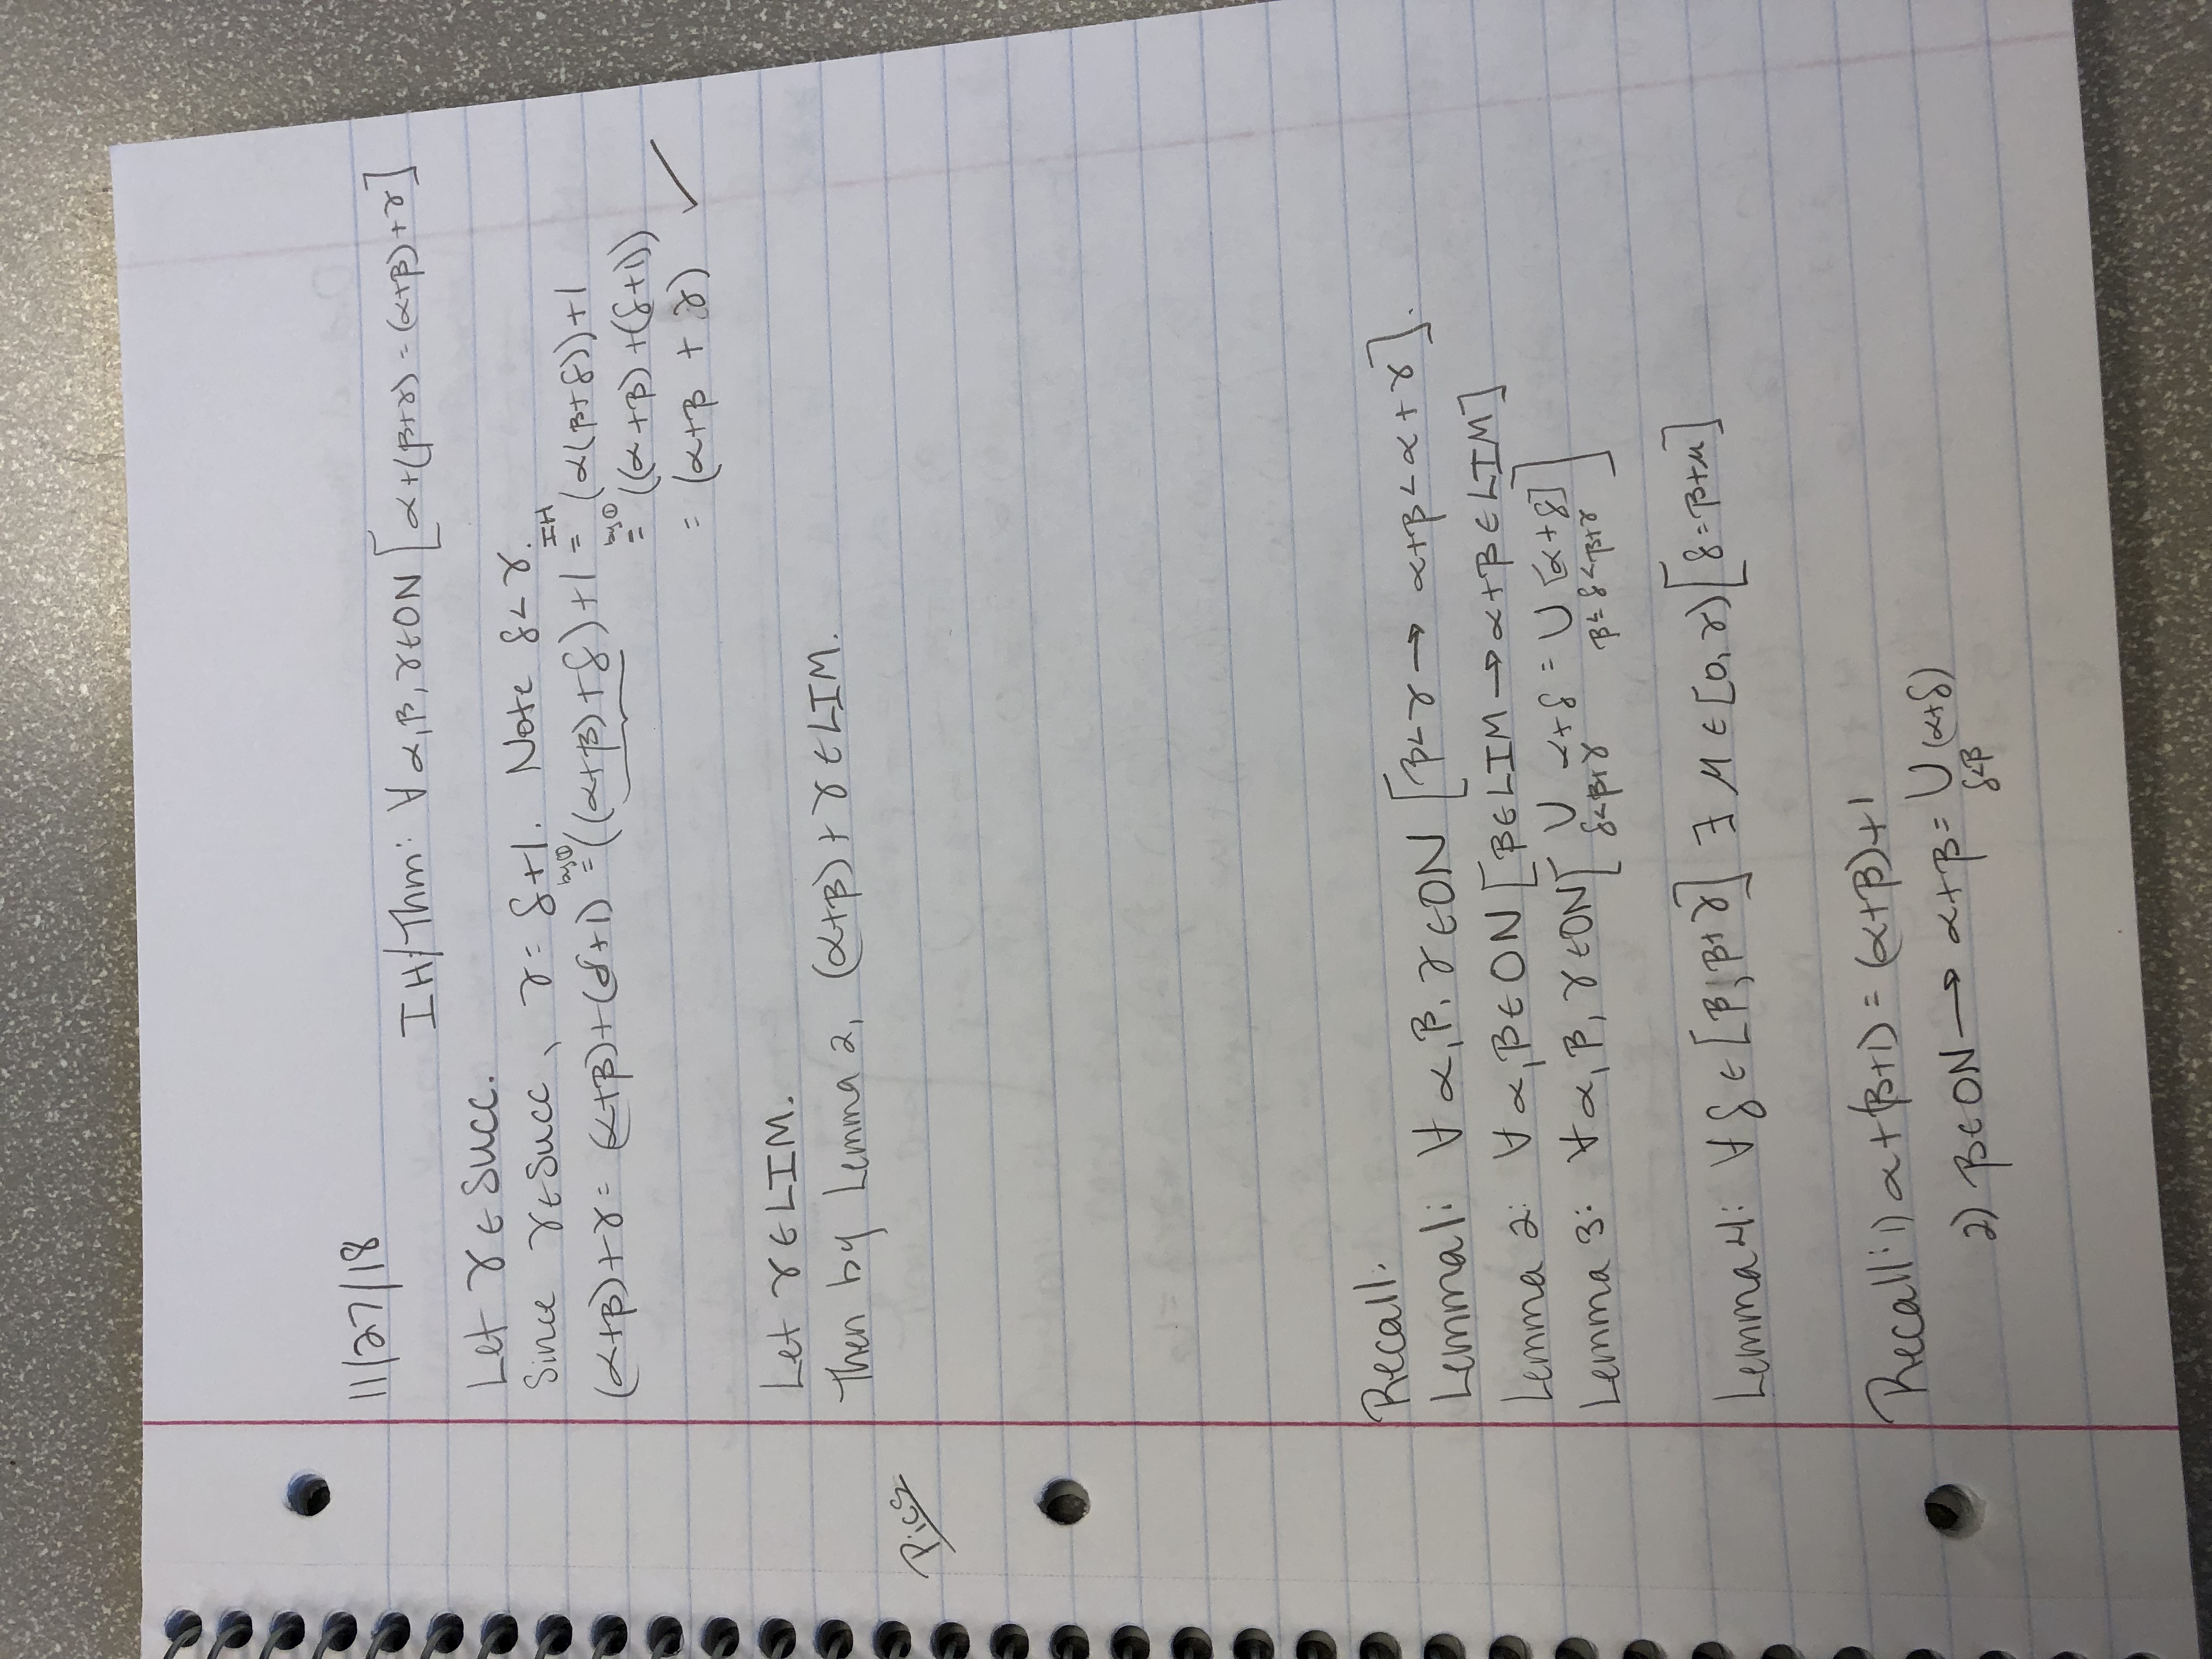 11/27/18
IH/Thm: ∀ α, β, γ ∈ ON [α+(β+γ) = (α+β)+γ]
Let γ ∈ Succ.
Since γ ∈ Succ, γ = δ+1. Note δ < γ.
(α+β)+γ = (α+β)+(δ+1) =(by ①) ((α+β)+δ)+1 =(IH) (α(β+δ))+1
=(by ①) ((α+β)+(δ+1))
= (α+β + γ) ✓
Let γ ∈ LIM.
Then by Lemma 2, (α+β)+γ ∈ LIM.
Pics
Recall:
Lemma 1: ∀ α, β, γ ∈ ON [β<γ → α+β < α+γ].
Lemma 2: ∀ α, β ∈ ON [β ∈ LIM → α+β ∈ LIM]
Lemma 3: ∀ α, β, γ ∈ ON [∪_{δ<β+γ} α+δ = ∪_{β≤δ<β+γ} [α+δ]]
Lemma 4: ∀ δ ∈ [β, β+γ] ∃ μ ∈ [0, γ) [δ = β+μ]
Recall: 1) α+(β+1) = (α+β)+1
2) β ∈ ON → α+β = ∪_{δ<β} (α+δ)